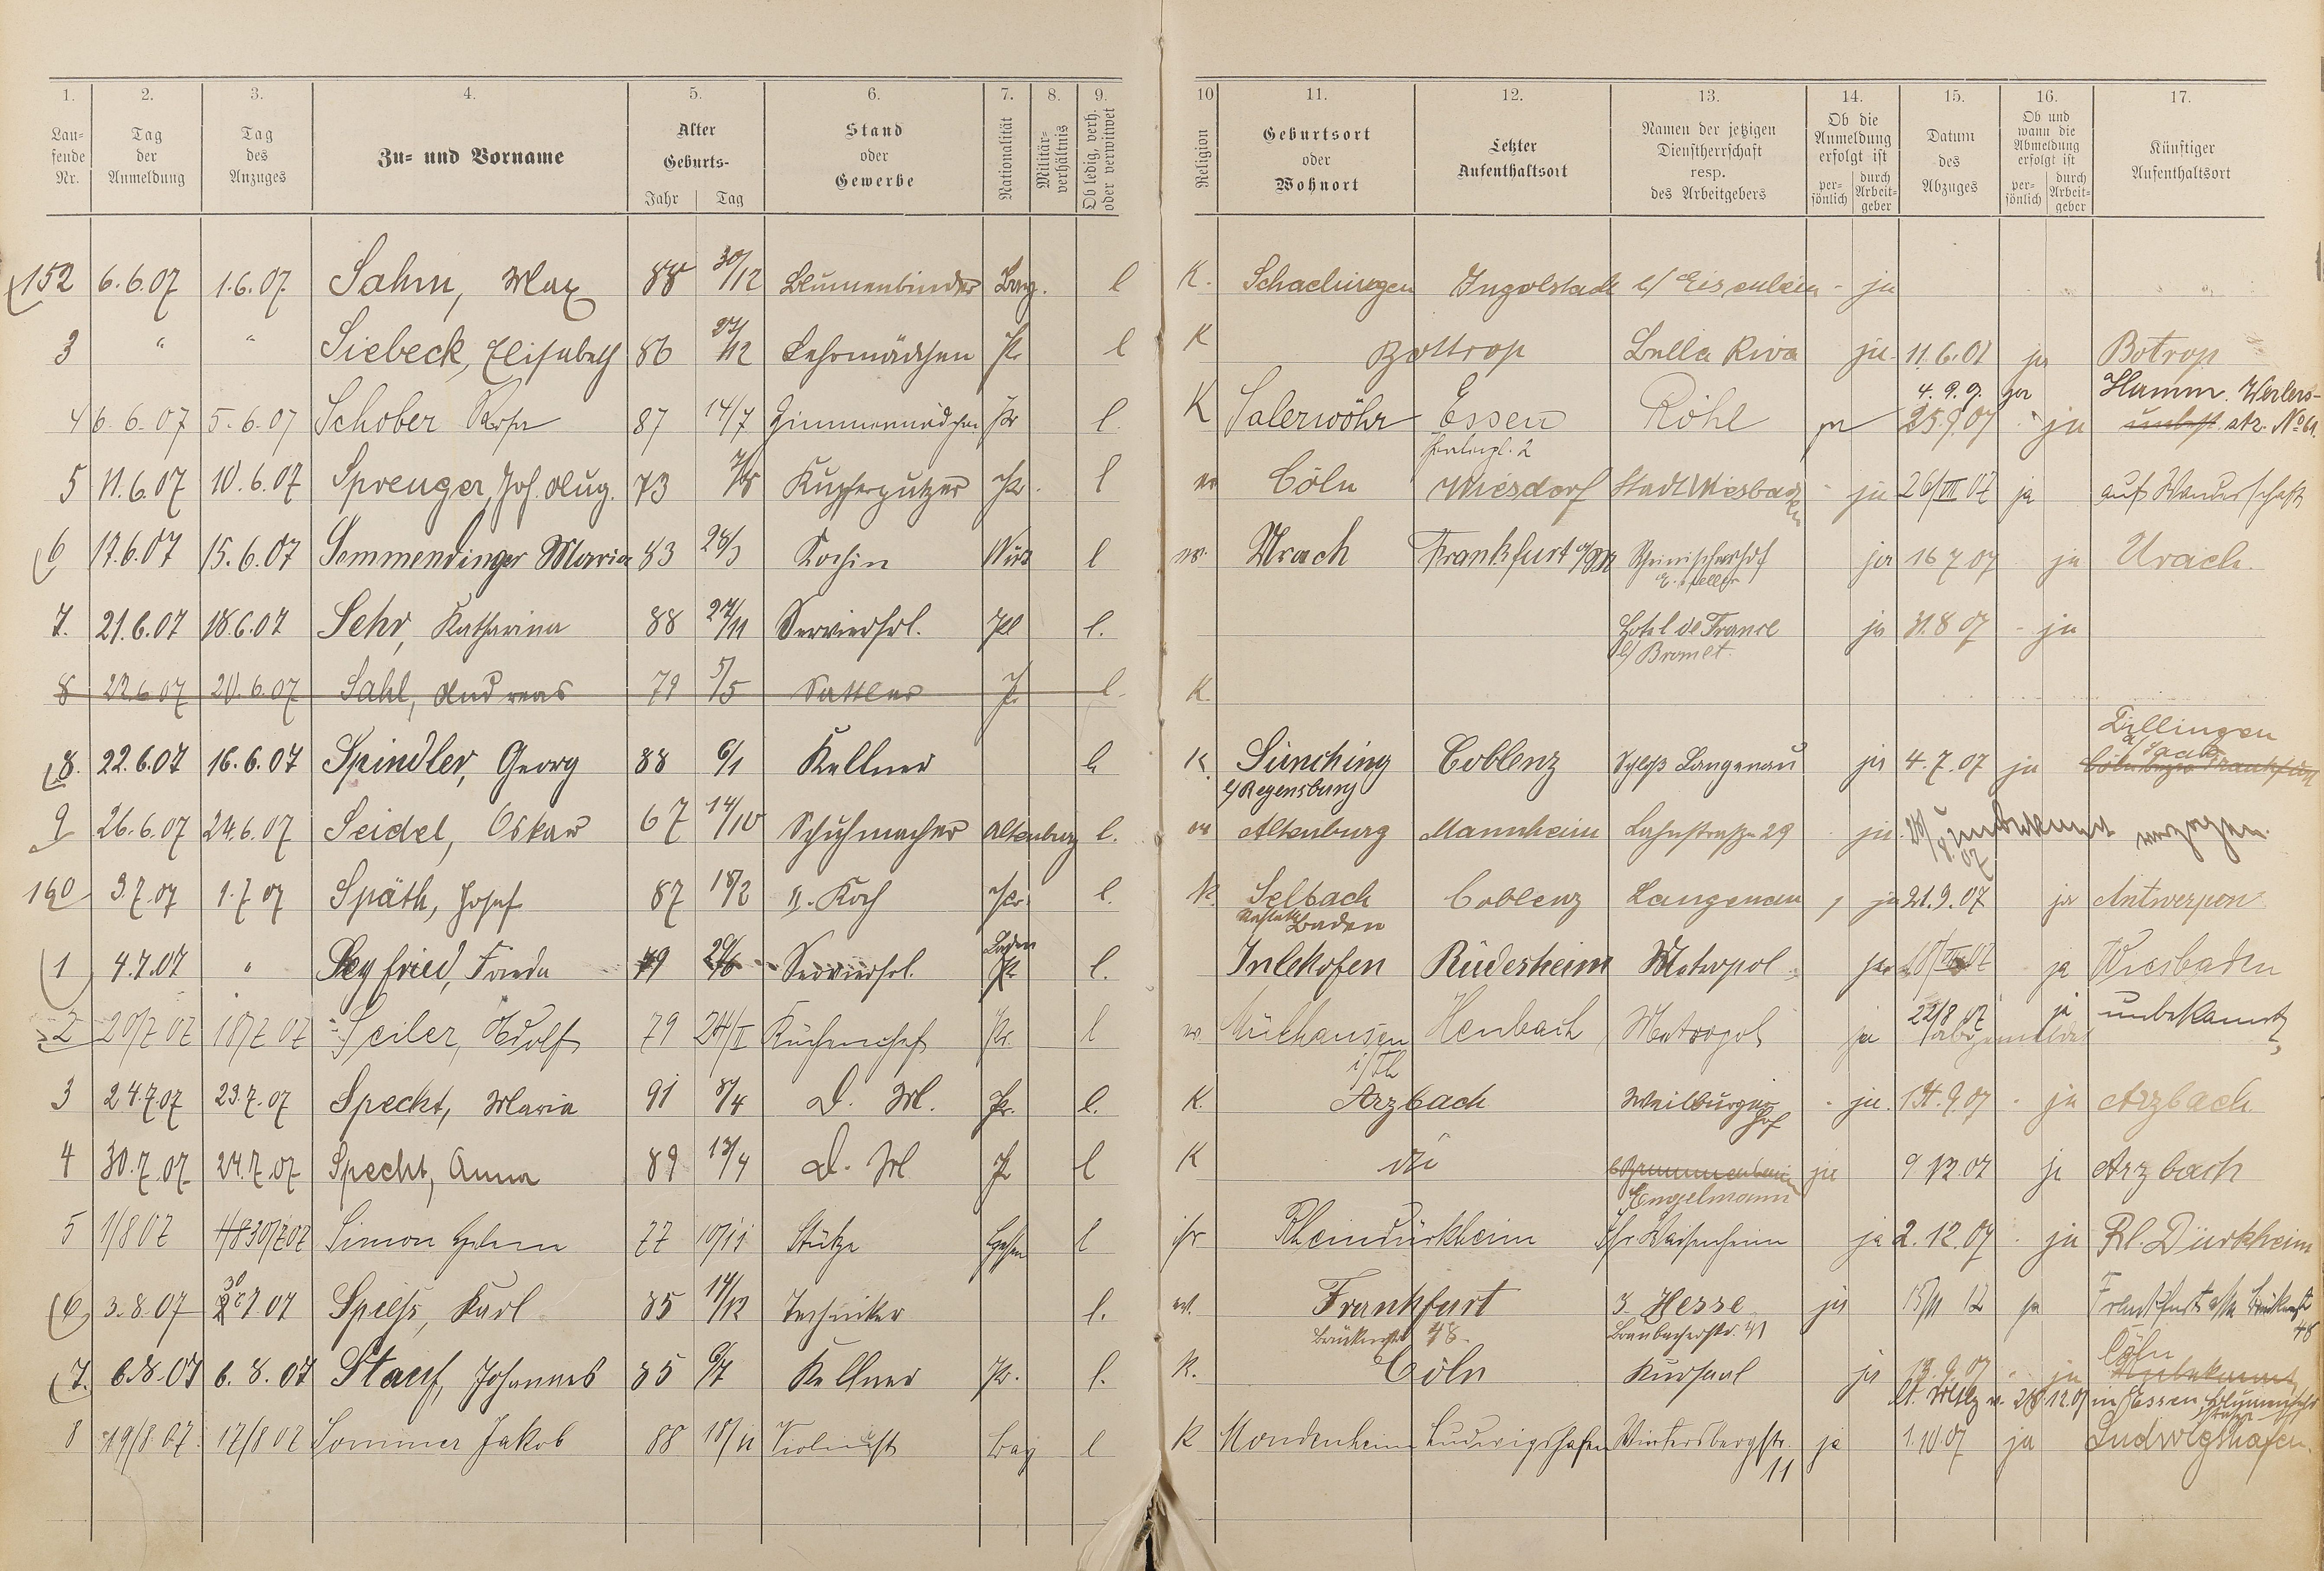 1. 2. 3. 4. 5. 6. 7. 8. 9. 10 11. 12. 13. 14. 15. 16. 17.
Lau-
fende
Nr.
Tag
der
Anmeldung
Tag
des
Anzuges
Zu- und Vorname
Alter
Geburts-
Jahr Tag
Stand
oder
Gewerbe
Nationalität
Militär-
verhältnis
Ob ledig, verh.
oder verwitwet
Religion
Geburtsort
oder
Wohnort
Letzter
Aufenthaltsort
Namen der jetzigen
Dienstherrschaft
resp.
des Arbeitgebers
Ob die
Anmeldung
erfolgt ist
per-
sönlich
durch
Arbeit-
geber
Datum
des
Abzuges
Ob und
wann die
Abmeldung
erfolgt ist
per-
sönlich
durch
Arbeit-
geber
Künftiger
Aufenthaltsort
152 6.6.07 1.6.07. Sahm, Max 88 30/12 Blumenbinder l K. Ingolstadt ja
3 " " Siebeck, Elisabeth 86 27/12 Lehrmädchen Pr l K Bottrop Bella Riva ja 11.6.07 ja Botrop
4 6.6.07 5.6.07 Schober Rosa 87 14/7 Zimmermädchen Pr l. K Salerwöhr Essen Röhl ja 25.9.07 ja
4.9.9. ja Hamm. Werlers-
str. No 61.
5 11.6.07 10.6.07 Sprenger, Joh. Aug. 73 Kupferputzer Pr. l ev Cöln Wiesdorf Stadt Wiesbaden ja 26/VI 07 ja auf Wanderschaft
6 17.6.07 15.6.07 Semmendinger Maria 83 28/3 Köchin Würt l ev. Urach Frankfurt a/M Rheinischerhof ja 16 7 07 ja Urach.
7. 21.6.07 18.6.07 Sehr, Katharina 88 27/11 Servierfrl. l. Hotel de France ja 31.8 07 - ja
b/ Bromet.
8 22.6.07 20.6.07 Sahl, Andreas 79 5/5 Sattler Pr l. K.
8. 22.6.07 16.6.07 Spindler, Georg 88 6/1 Kellner l K. Sünching Coblenz Schloß Langenau ja 4.7.07 ja
b/Regensburg
9 26.6.07 24.6.07 Seidel, Oskar 67 14/10 Schuhmacher Altenburg l. ev Altenburg Mannheim Lahnstraße 29 ja unbekannt verzogen.
160 3.7.07 1.7.07 Späth, Josef 87 18/2 II. Koch Pr. l. K. Selbach Coblenz Langenau ja 21.9.07 ja Antwerpen
Baden
1 4.7.07 " Seyfried, Frieda 79 Servierfrl. l. Inlekofen Rüdesheim Metropol ja ja Wiesbaden
Baden
2 20/7 07 18/7 07 Seiler, Adolf 79 24/I Küchenchef Pr. l ev. Mülhausen Metropol ja 22/8 07 ja unbekannt
i/Th abgemeldet
3 24.7.07 23.7.07 Specht, Maria 91 8/4 D. M. Pr. l. K. Arzbach Weilburger ja. 14.9.07 ja Arzbach
Hof
4 30.7.07 24.7.07 Specht, Anna 89 13/4 D. M Pr l K do ja 9 12 07 ja Arzbach
Engelmann
5 1/8 07 30/7 07 Simon Helene 77 10/11 Stütze Hessen l isr Rheindürkheim ja 2.12.07 ja Rh. Dürkheim
6 3.8.07 30 7 07 Spiess, Karl 85 14/12 Techniker l. ev. Frankfurt 3. Hesse ja 15/11 12 ja
48 48
7. 6.8.07 6.8.07 Stauf, Johannes 85 6/7 Kellner Pr. l. K. Cöln Kursaal ja 19.9.07 ja Cöln
in Essen
8 19/8.07. 17/8 07 Sommer Jakob 88 18/11 Violinist Bay l K Mondenheim Ludwigshafen Wintersbergstr. ja 1.10.07 ja Ludwigshafen.
11